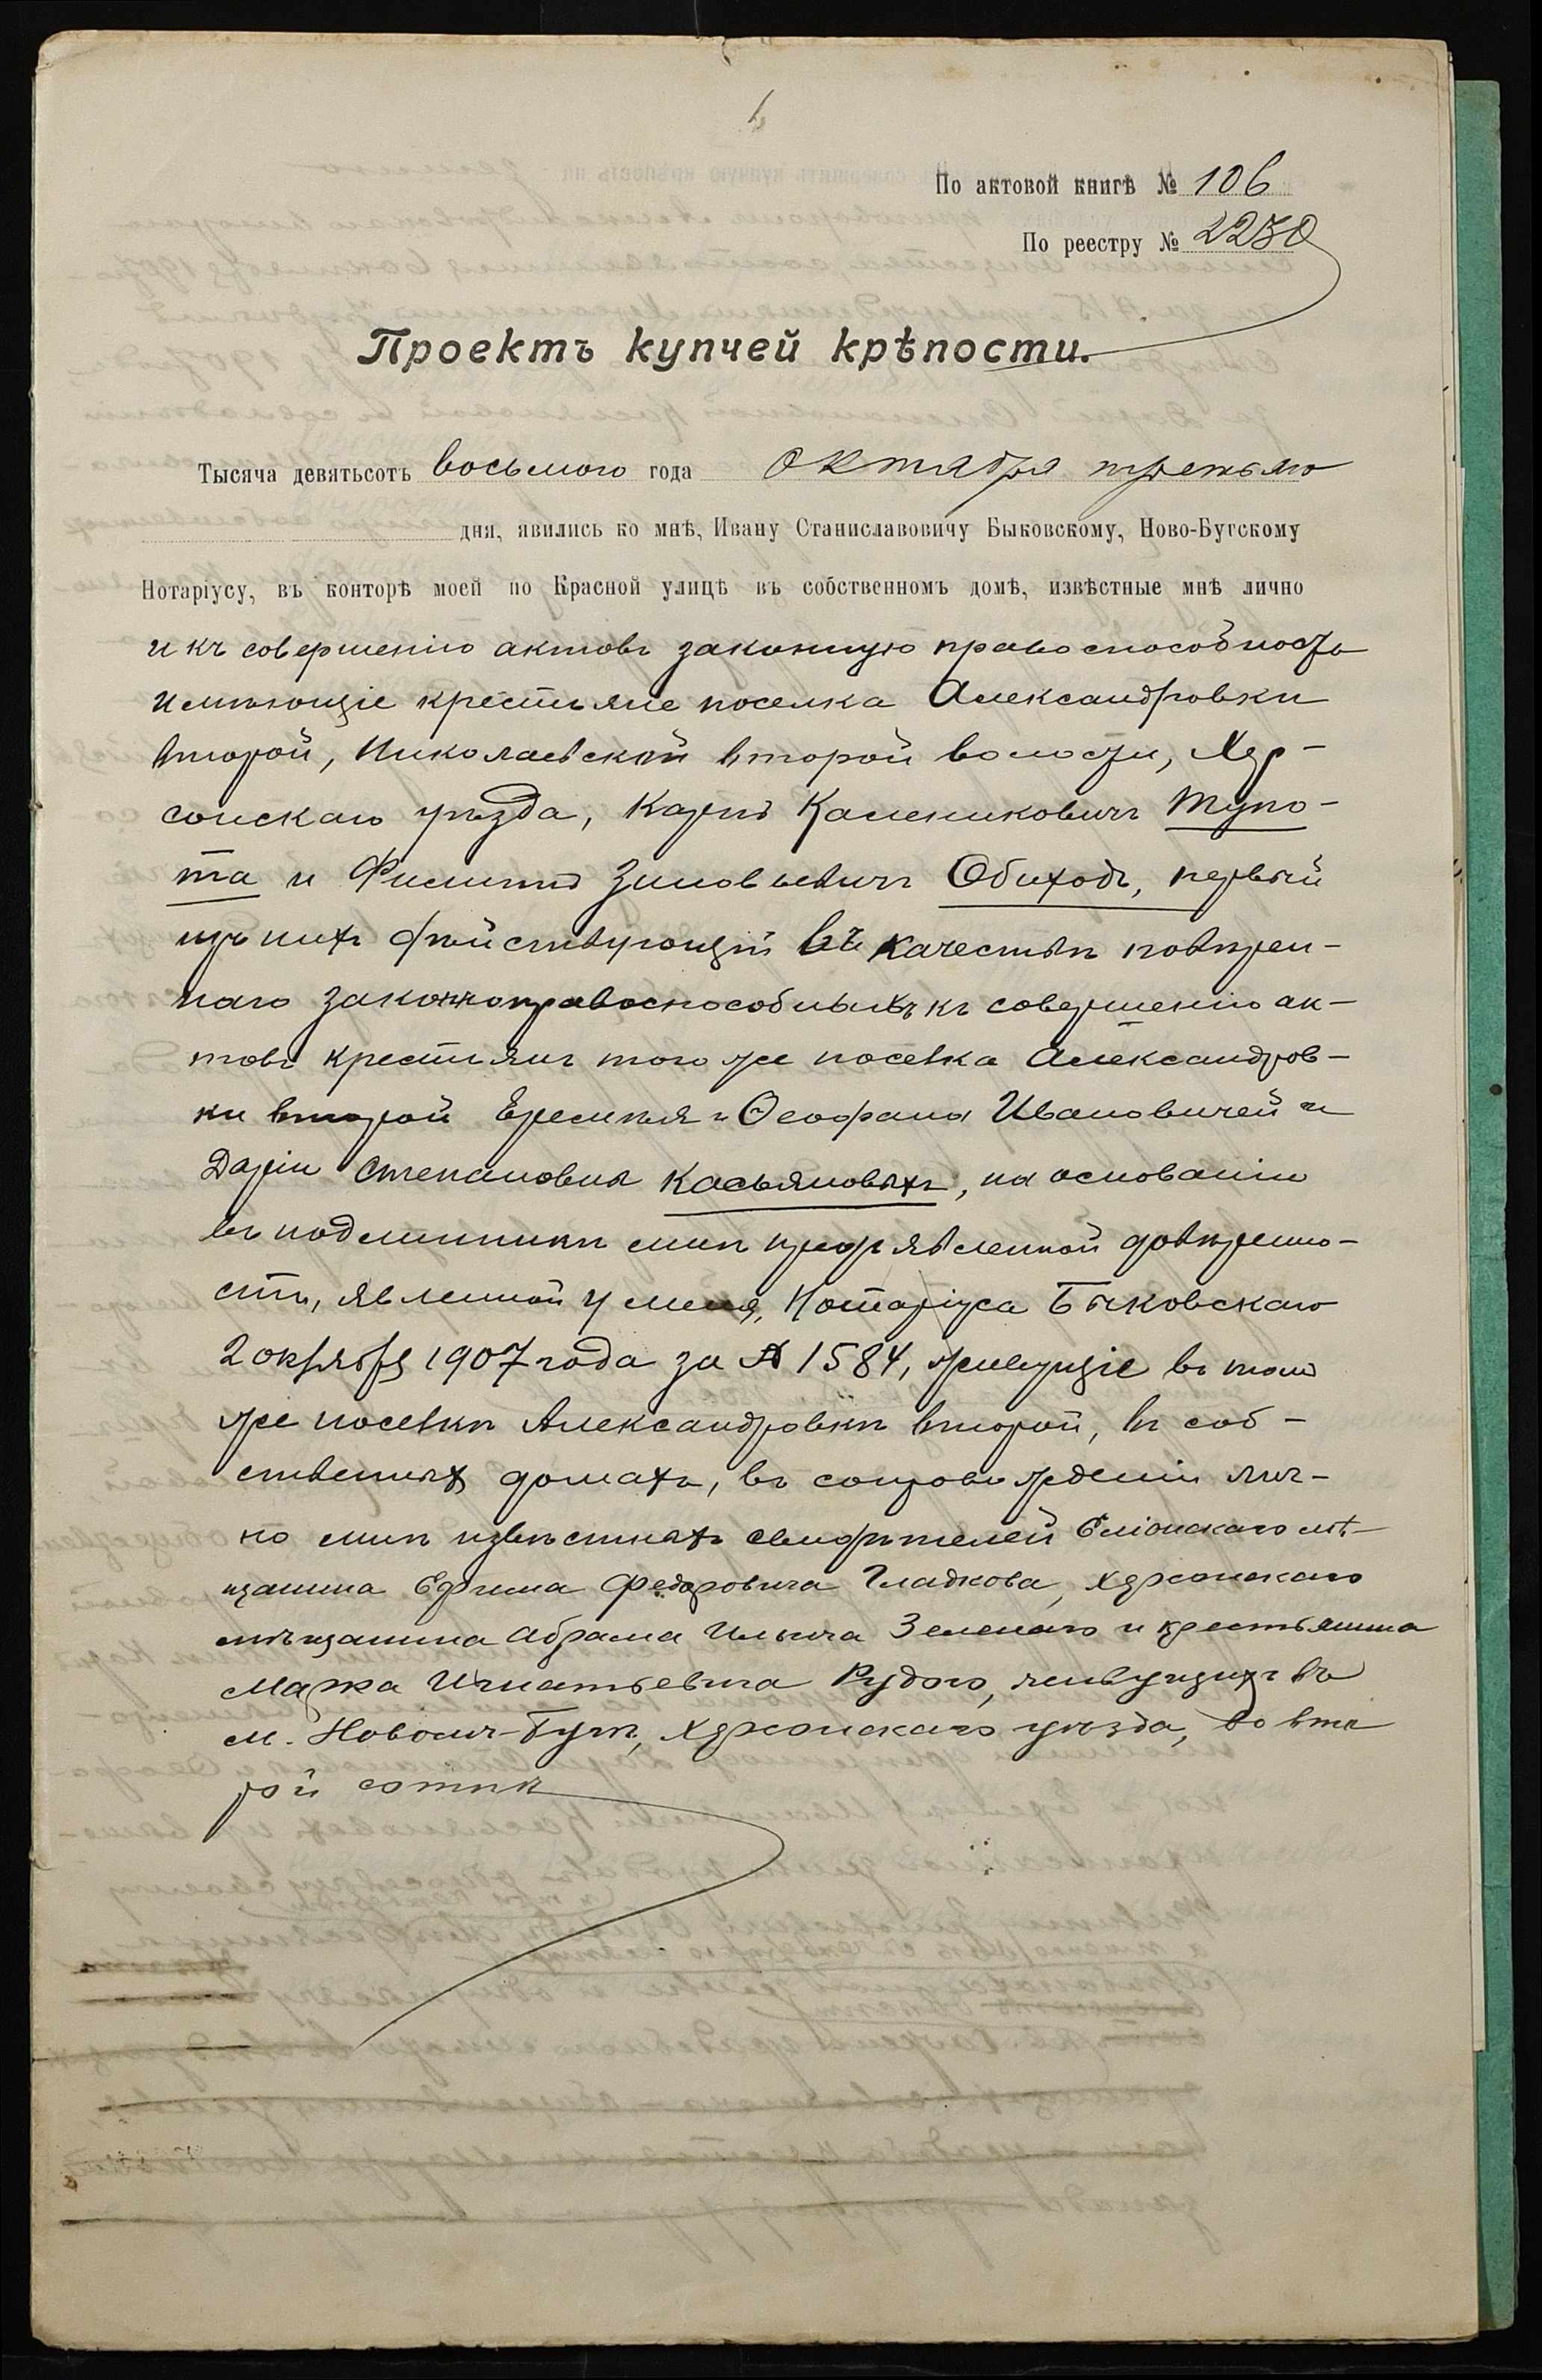 По актовой книгѣ № 106
По реестру № 2230
Проектъ купчей крѣпости.
Тысяча девятьсотъ восьмого года октября третьяго
дня, явились ко мнѣ, Ивану Станиславовичу Быковскому, Ново-Бугскому
Нотаріусу, въ конторѣ моей по Красной улицѣ въ собственномъ домѣ, извѣстные мнѣ лично
и къ совершенію актовъ законную правоспособность
имѣющіе крестьяне поселка Александровки
второй, Николаевской второй волости, Хер-
сонскаго уѣзда, Карпъ Калениковичъ Тупо-
та и Филиппъ Зиновьевичъ Обиходъ, первый
изъ нихъ дѣйствующій въ качествѣ повѣрен-
наго законноправоспособныхъ къ совершенію ак-
товъ крестьянъ того же поселка Александров-
ки второй Еремѣя и Ѳеофана Ивановичей и
Даріи Степановны Касьяновыхъ, на основаніи
въ подлинникѣ мнѣ предъявленной довѣренно-
сти, явленной у меня, Нотаріуса Быковскаго
2 октября 1907 года за № 1584, живущіе въ томъ
же поселкѣ Александровкѣ второй, въ соб-
ственныхъ домахъ, въ сопровожденіи лич-
но мнѣ извѣстныхъ свидѣтелей мѣ-
щанина Ефима Федоровича Гладкова, Херсонскаго
мѣщанина Абрама Ильича Зеленаго и крестьянина
Марка Игнатьевича Рудого, живущихъ въ
м. Новомъ-Бугѣ, Херсонскаго уѣзда, во вто
рой сотнѣ